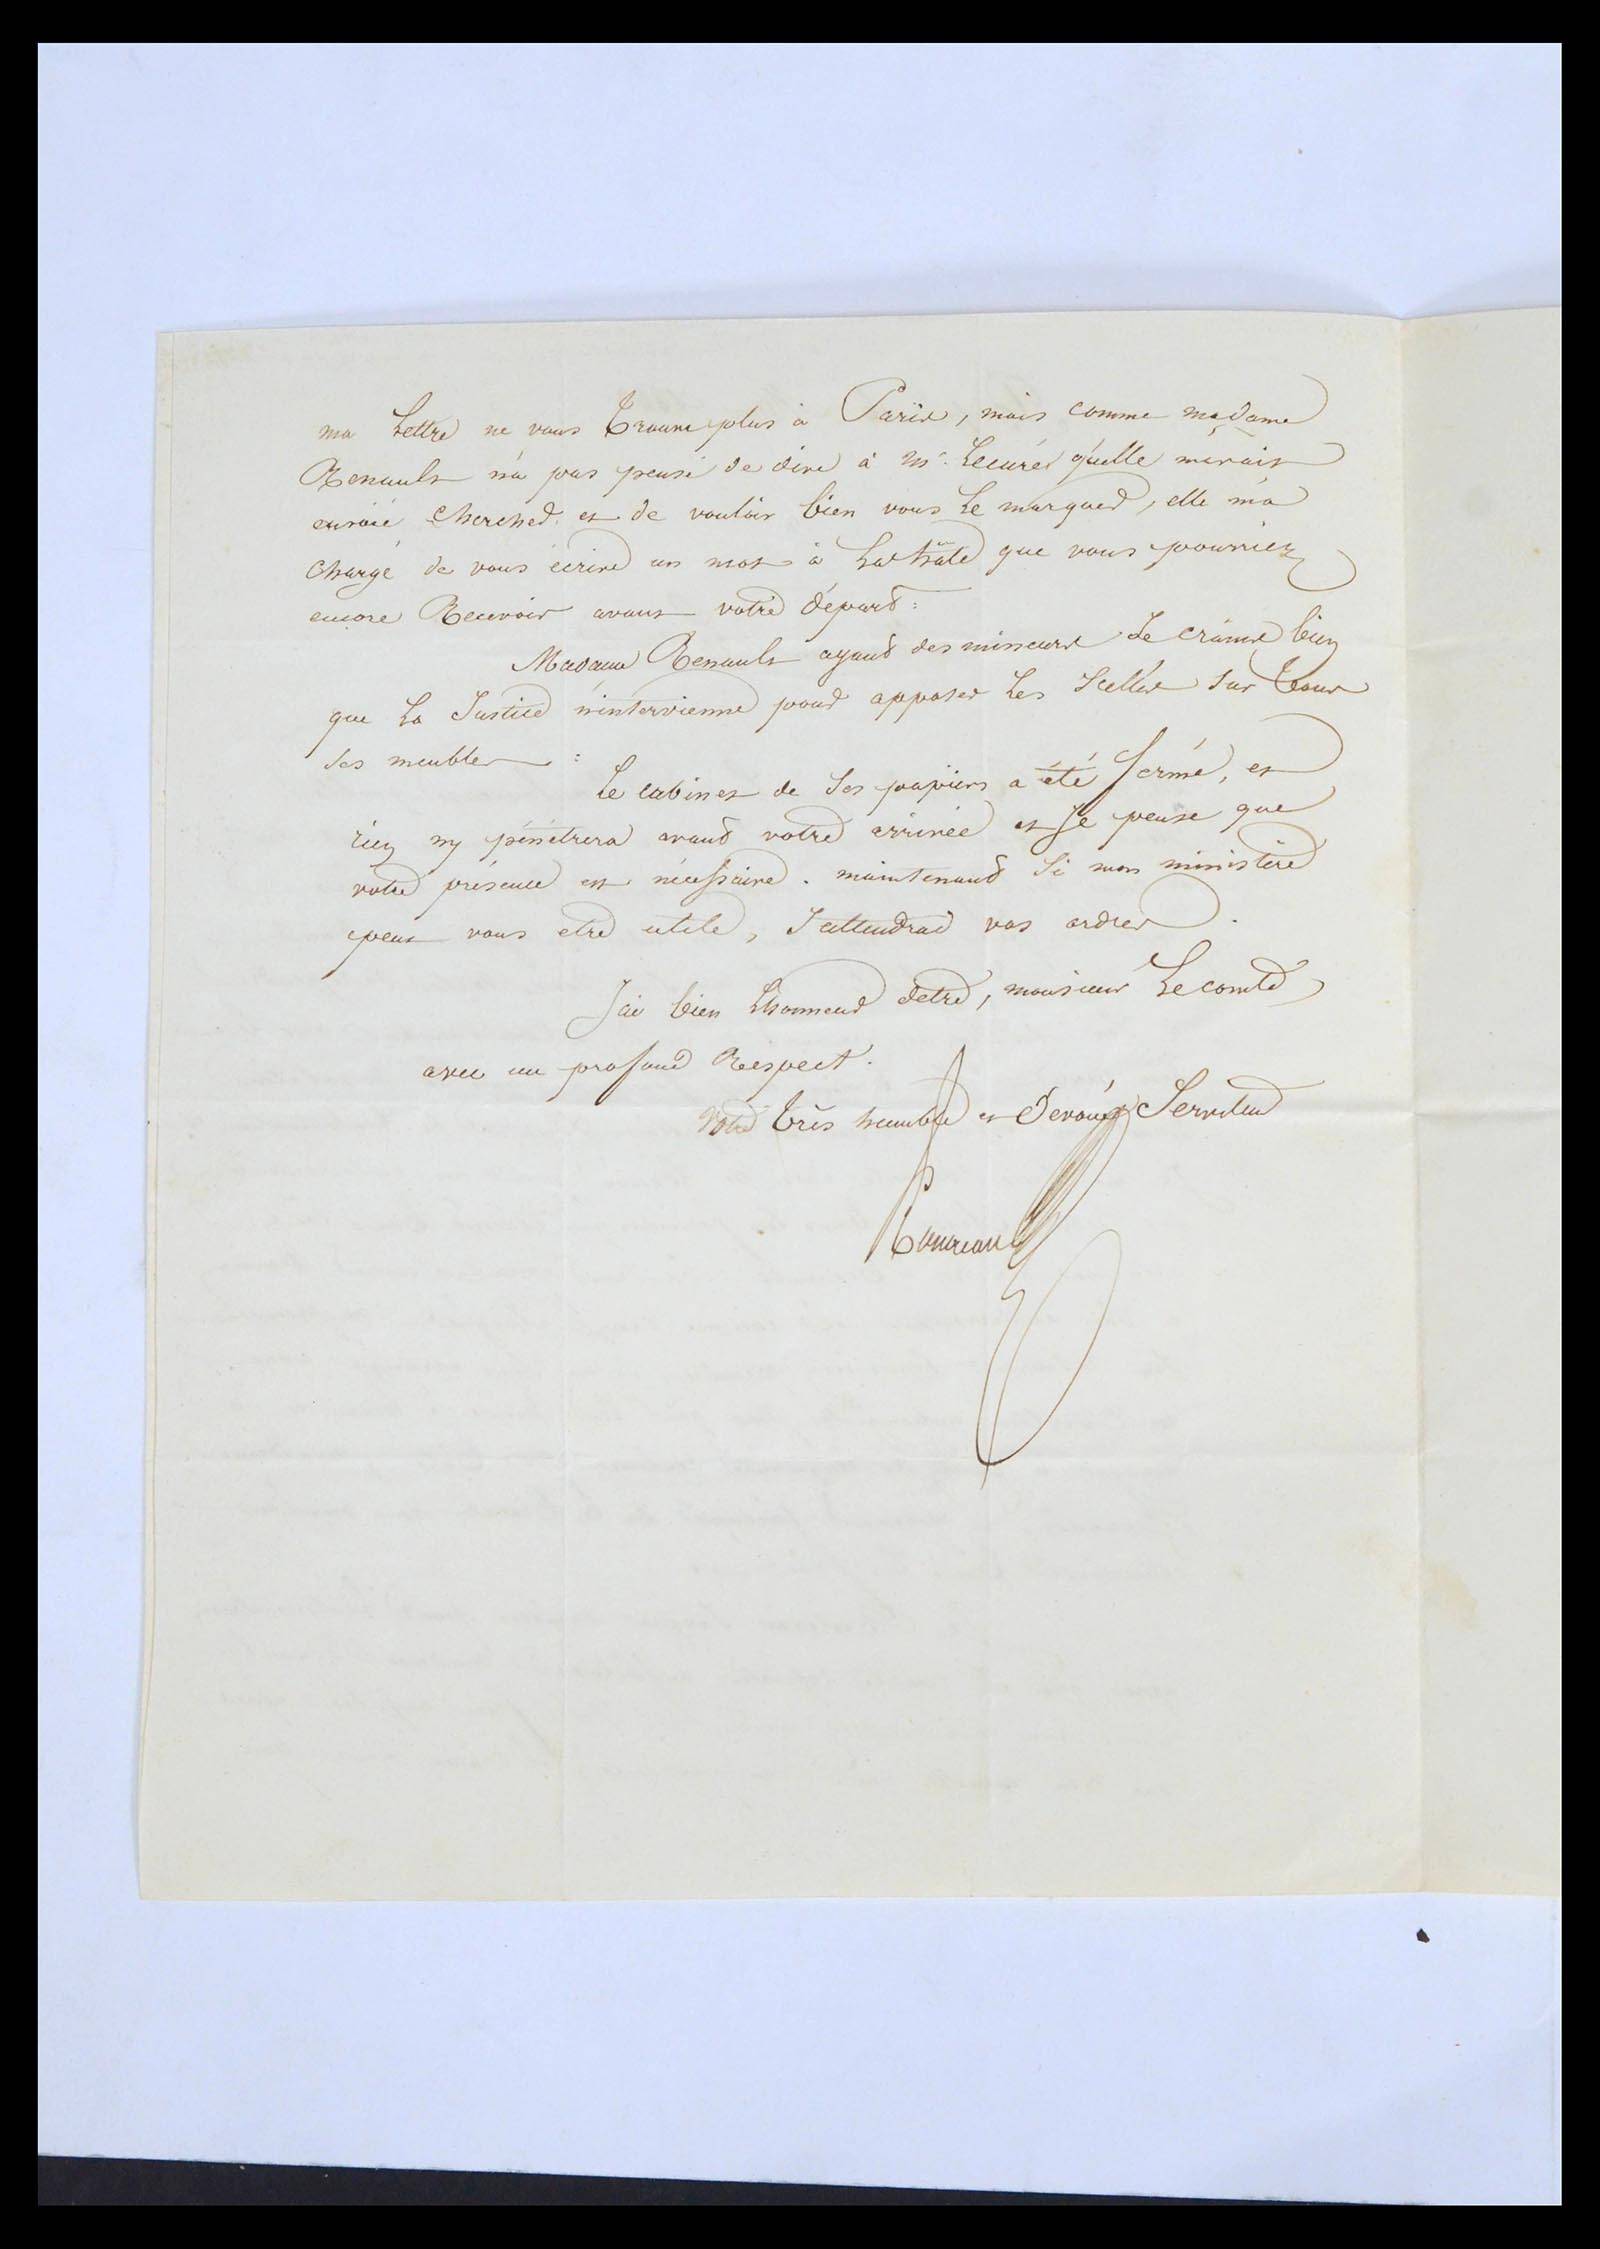 ma Lettre ne vous trouve plus à Paris, mais comme madame
Renault n'a pas pensé de dire à Mr. Lecuré qu'elle m'avait
envoié cherched et de vouloir bien vous le marquer, elle m'a
chargé de vous écrire un mot à La hâte que vous pourriez
encore Recevoir avant votre départ :
Madame Renault ayant des mineurs Je crains bien
que La Justice n'intervienne pour apposer Les Scellés sur tous
ses meubles :
Le cabinet de Ses papiers a été fermé, et
rien ny pénétrera avant votre arrivée et Je pense que
votre présence est nécessaire . maintenant Si mon ministère
peut vous etre utile, J'attendrai vos ordres .
J'ai bien L'honneur d'etre, monsieur Le comte
avec un profond Respect.
Votre très humble et Devoué Serviteur